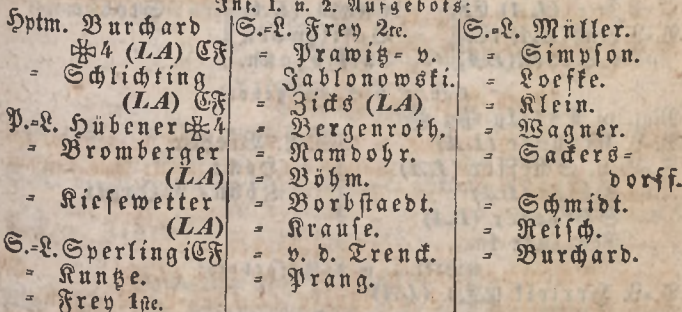 Inf. 1. u. 2. Aufgebots:
Hptm. Burchard
✠4 (LA) CF
= Schlichting
(LA) CF
P.=L. Hübener ✠4
= Bromberger
(LA)
= Kiesewetter
(LA)
S.=L. Sperling i CF
= Kuntze.
= Frey 1ste.
S.=L. Frey 2te.
= Prawitz= v.
Jablonowski.
= Zicks (LA)
= Bergenroth.
= Ramdohr.
= Böhm.
= Borbstaedt.
= Krause.
= v. d. Trenck.
= Prang.
S.=L. Müller.
= Simpson.
= Loeffke.
= Klein.
= Wagner.
= Sackers=
dorff.
= Schmidt.
= Reisch.
= Burchard.